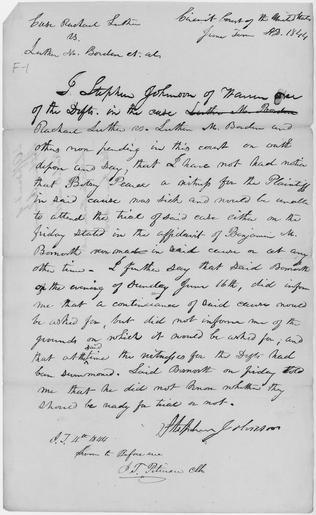 Case Rachael Luther
vs.
Luther M. Borden et. als
Circuit Court of the United States
June Term AD. 1844
F-1
I Stephen Johnson of Warren one
of the Defts. in the case Luther M. Borden
Rachael Luther vs. Luther M. Borden and
others now pending in this court on oath
depose and say, that I have not had notice
that Betsy Pearce a witness for the Plaintiff
in said cause was sick and would be unable
to attend the trial of said case either on the
friday stated in the affidavit of Benjamin M.
Bosworth now made in said cause or at any
other time - I further say that said Bosworth
on the evening of Sunday June 16th, did inform
me that a continuance of said cause would
be asked for, but did not inform me of the
grounds on which it would be asked for, and
that at said time the witnesses for the Defts. had
been summoned. Said Bosworth on friday told
me that he did not know whether they
should be ready for trial or not.
Stephen Johnson
J.T. 1844
Sworn to Before me
J.T. Pitman Clk